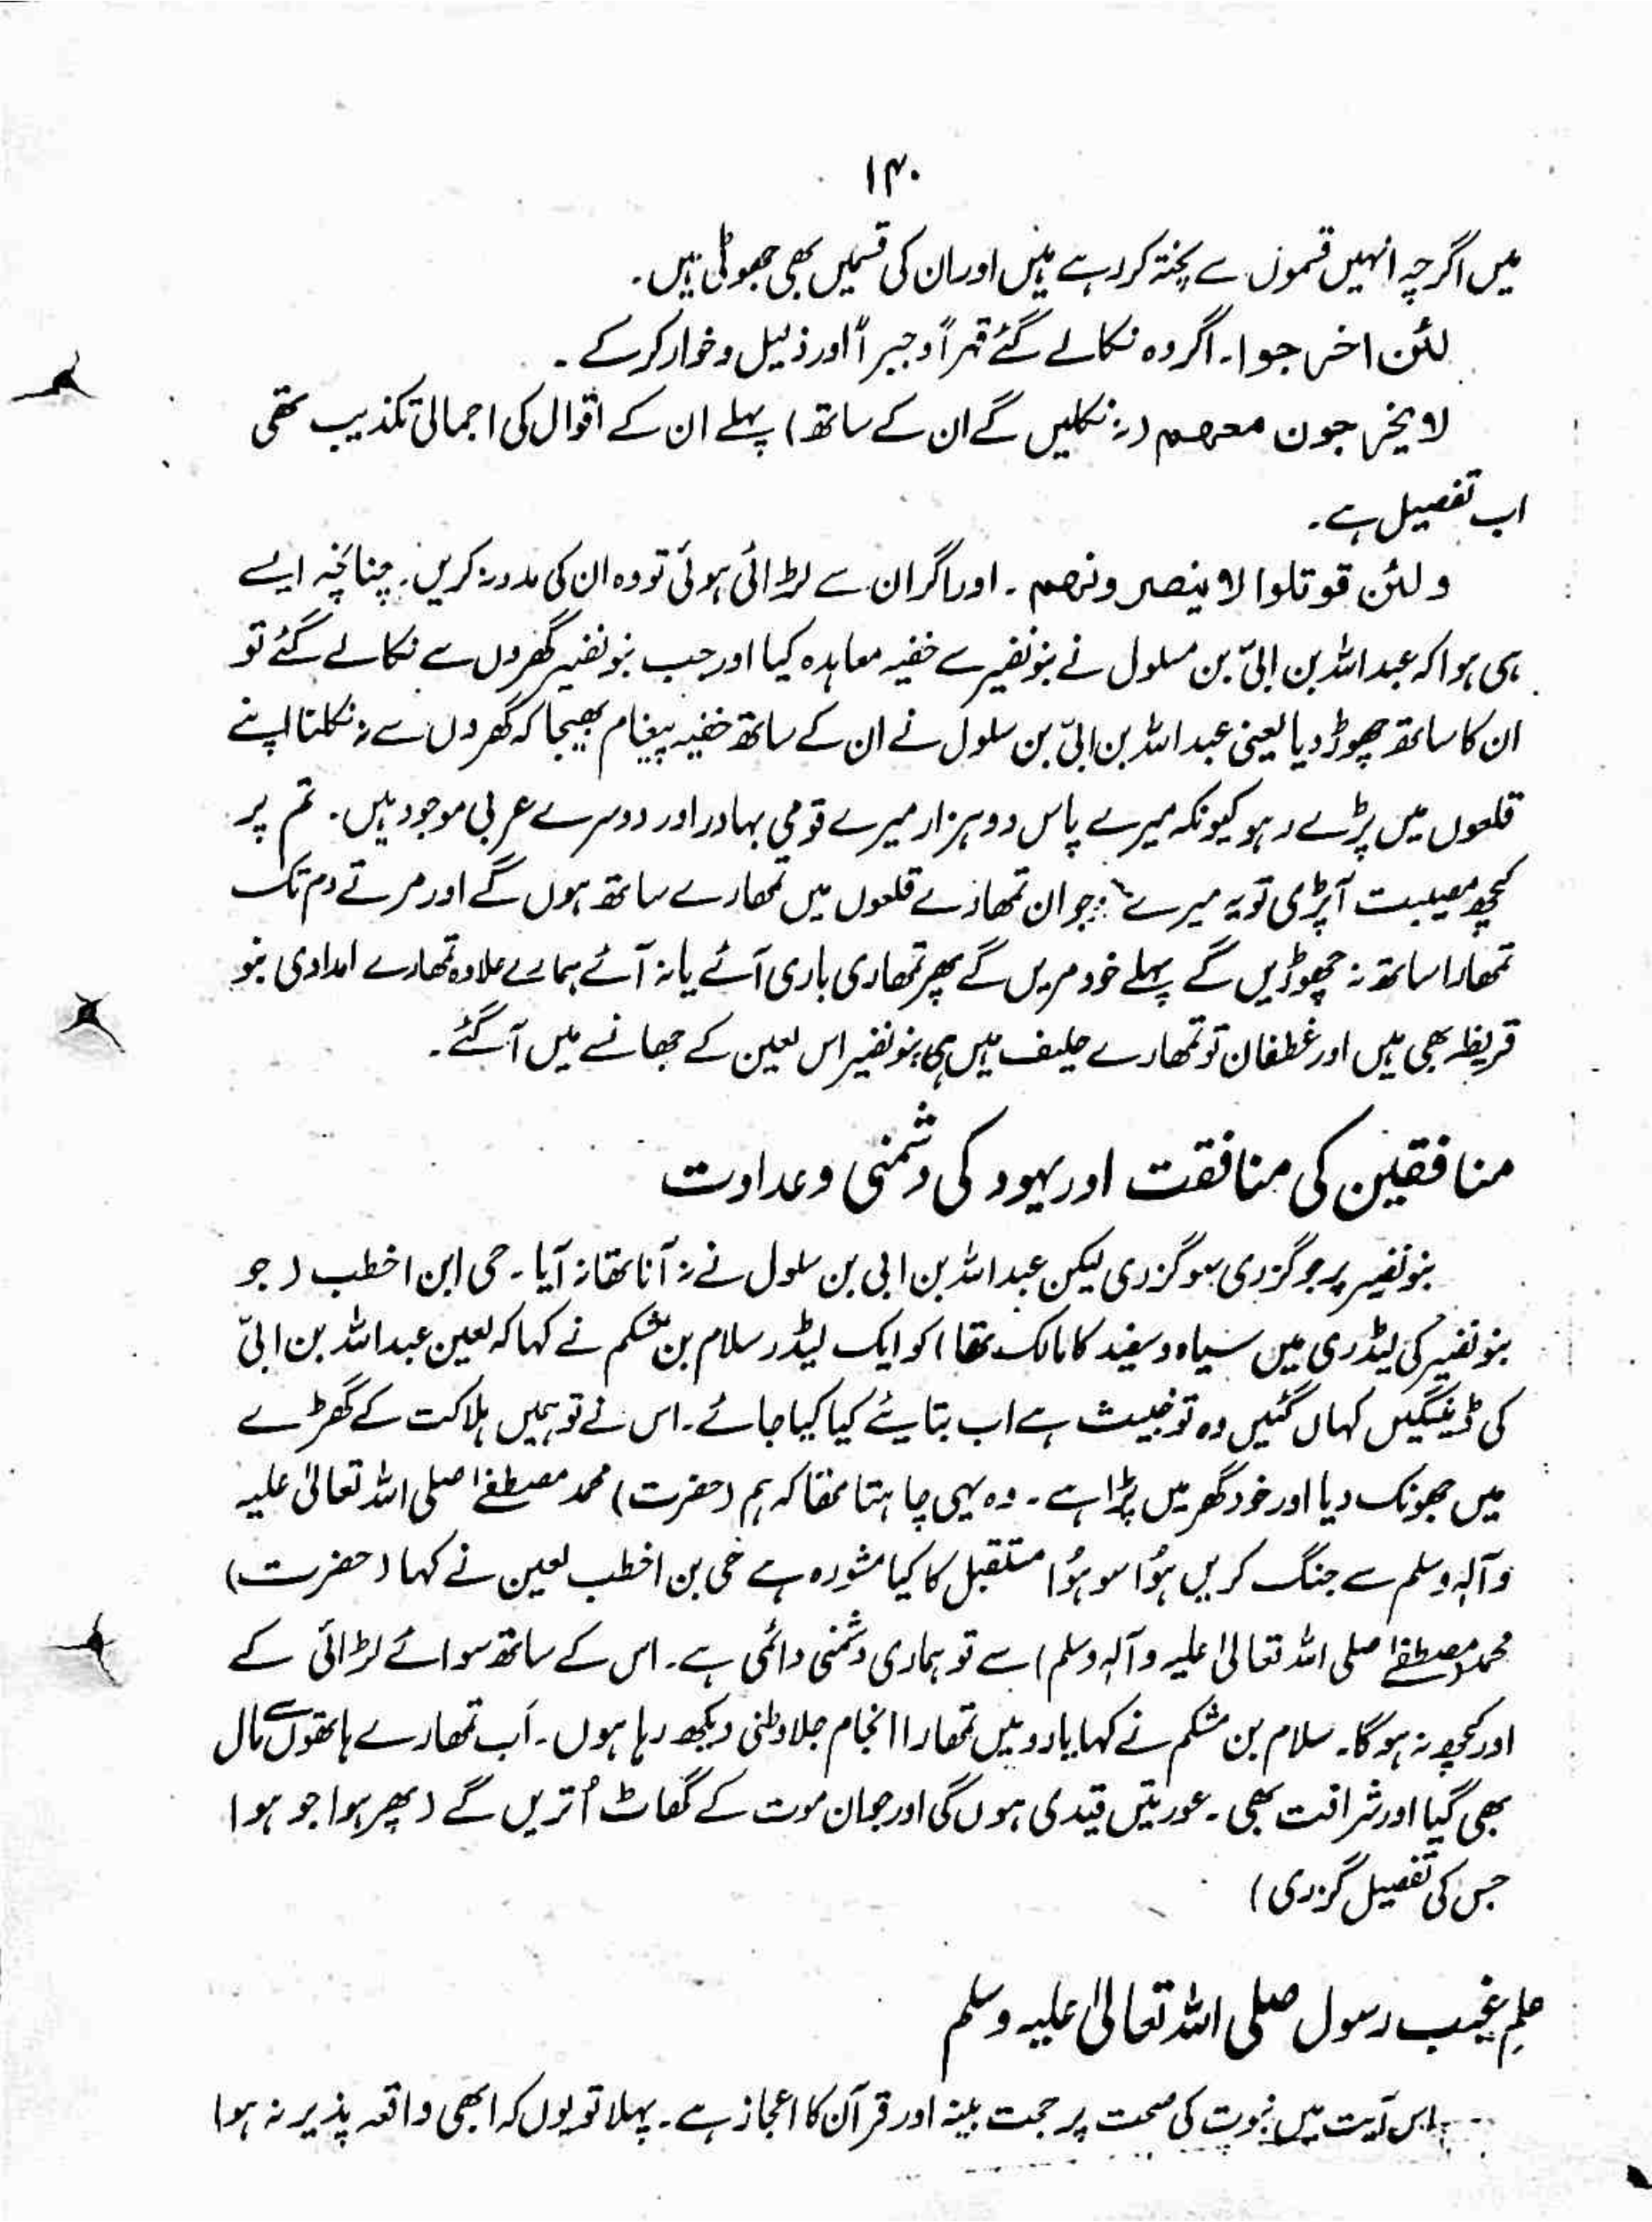 ۱۴۰
میں اگرچہ انہیں قسموں سے پختہ کر رہے ہیں اور ان کی قسمیں بھی جھوٹی ہیں۔
لئن اخرجوا۔ اگر وہ نکالے گئے قہراً و جبراً اور ذلیل و خوار کرکے۔
لا یخرجون معھم (نہ نکلیں گے ان کے ساتھ) پہلے ان کے اقوال کی اجمالی تکذیب تھی
اب تفصیل ہے۔
ولئن قوتلوا لا ینصرونھم۔ اور اگر ان سے لڑائی ہوئی تو وہ ان کی مدد نہ کریں۔ چنانچہ ایسے
ہی ہوا کہ عبداللہ بن ابیّ بن سلول نے بنو نضیر سے خفیہ معاہدہ کیا اور جب بنو نضیر گھروں سے نکالے گئے تو
ان کا ساتھ چھوڑ دیا یعنی عبداللہ بن ابیّ بن سلول نے ان کے ساتھ خفیہ پیغام بھیجا کہ گھروں سے نہ نکلنا اپنے
قلعوں میں پڑے رہو کیونکہ میرے پاس دو ہزار میرے قومی بہادر اور دوسرے عربی موجود ہیں۔ تم پر
کچھ مصیبت آپڑی تو یہ میرے نوجوان تمھارے قلعوں میں تمھارے ساتھ ہوں گے اور مرتے دم تک
تمھارا ساتھ نہ چھوڑیں گے پہلے خود مریں گے پھر تمھاری باری آئے یا نہ آئے ہمارے علاوہ تمھارے امدادی بنو
قریظہ بھی ہیں اور غطفان تو تمھارے حلیف ہیں ہی بنو نضیر اس لعین کے جھانسے میں آگئے۔
منافقین کی منافقت اور یہود کی دشمنی و عداوت
بنو نضیر پر جو گزری سو گزری لیکن عبداللہ بن ابی بن سلول نے نہ آنا تھا نہ آیا۔ حی ابن اخطب (جو
بنو نضیر کی لیڈری میں سیاہ و سفید کا مالک تھا) کو ایک لیڈر سلام بن مشکم نے کہا کہ لعین عبداللہ بن ابیّ
کی ڈینگیں کہاں گئیں وہ تو خبیث ہے اب بتایئے کیا کیا جائے۔ اس نے تو ہمیں ہلاکت کے گھڑے
میں جھونک دیا اور خود گھر میں پڑا ہے۔ وہ یہی چاہتا تھا کہ ہم (حضرت) محمد مصطفےٰ صلی اللہ تعالیٰ علیہ
وآلہ وسلم سے جنگ کریں ہُوا سو ہُوا مستقبل کا کیا مشورہ ہے حی بن اخطب لعین نے کہا (حضرت)
محمد مصطفےٰ صلی اللہ تعالیٰ علیہ وآلہ وسلم) سے تو ہماری دشمنی دائمی ہے۔ اس کے ساتھ سوائے لڑائی کے
اور کچھ نہ ہوگا۔ سلام بن مشکم نے کہا یارو میں تمھارا انجام جلاوطنی دیکھ رہا ہوں۔ اَب تمھارے ہاتھوں سے مال
بھی گیا اور شرافت بھی۔ عورتیں قیدی ہوں گی اور جوان موت کے گھاٹ اُتریں گے (پھر ہوا جو ہوا
جس کی تفصیل گزری)
علمِ غیب رسول صلی اللہ تعالیٰ علیہ وسلم
اس آیت میں نبوت کی صحت پر حجت بینہ اور قرآن کا اعجاز ہے۔ پہلا تو یوں کہ ابھی واقعہ پذیر نہ ہوا